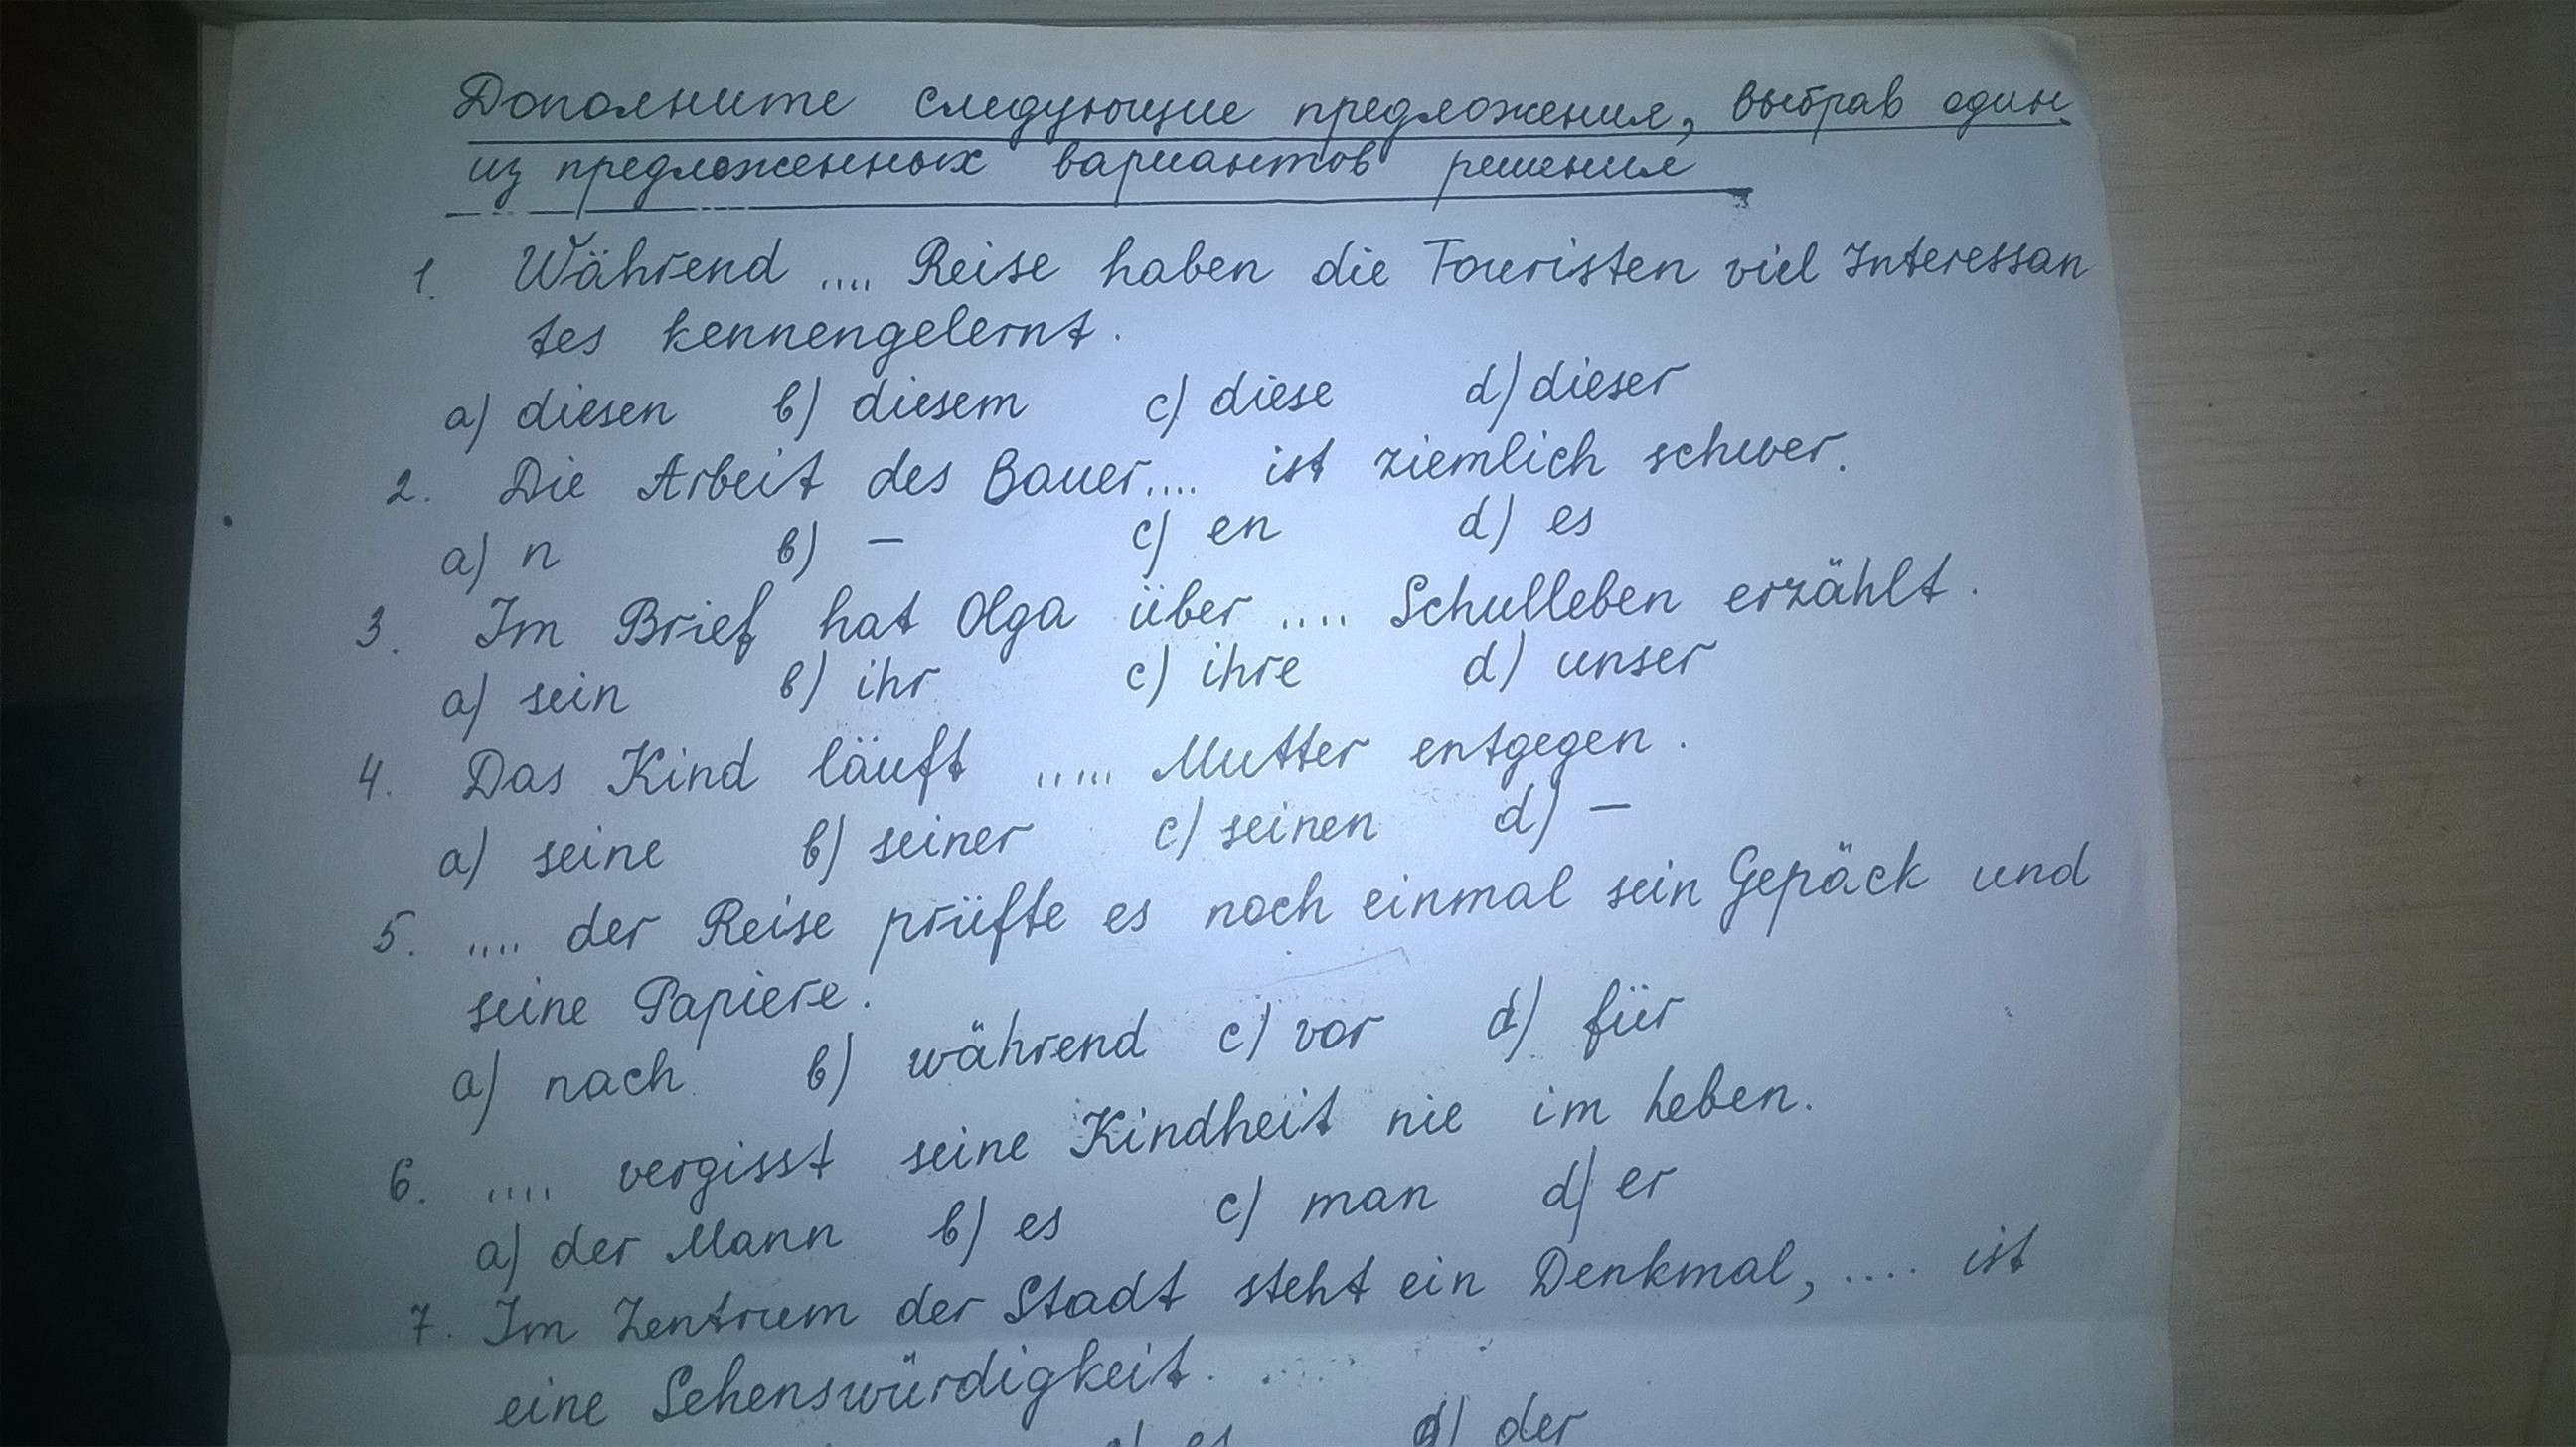 Дополните следующие предложения, выбрав один
из предложенных вариантов решения
1. Während .... Reise haben die Touristen viel Interessan
tes kennengelernt.
a) diesen b) diesem c) diese d) dieser
2. Die Arbeit des Bauer.... ist ziemlich schwer.
a) n b) – c) en d) es
3. Im Brief hat Olga über .... Schulleben erzählt.
a) sein b) ihr c) ihre d) unser
4. Das Kind läuft ..... Mutter entgegen.
a) seine b) seiner c) seinen d) –
5. .... der Reise prüfte es noch einmal sein Gepäck und
seine Papiere.
a) nach b) während c) vor d) für
6. .... vergisst seine Kindheit nie im Leben.
a) der Mann b) es c) man d) er
7. Im Zentrum der Stadt steht ein Denkmal, .... ist
eine Sehenswürdigkeit.
es d) der